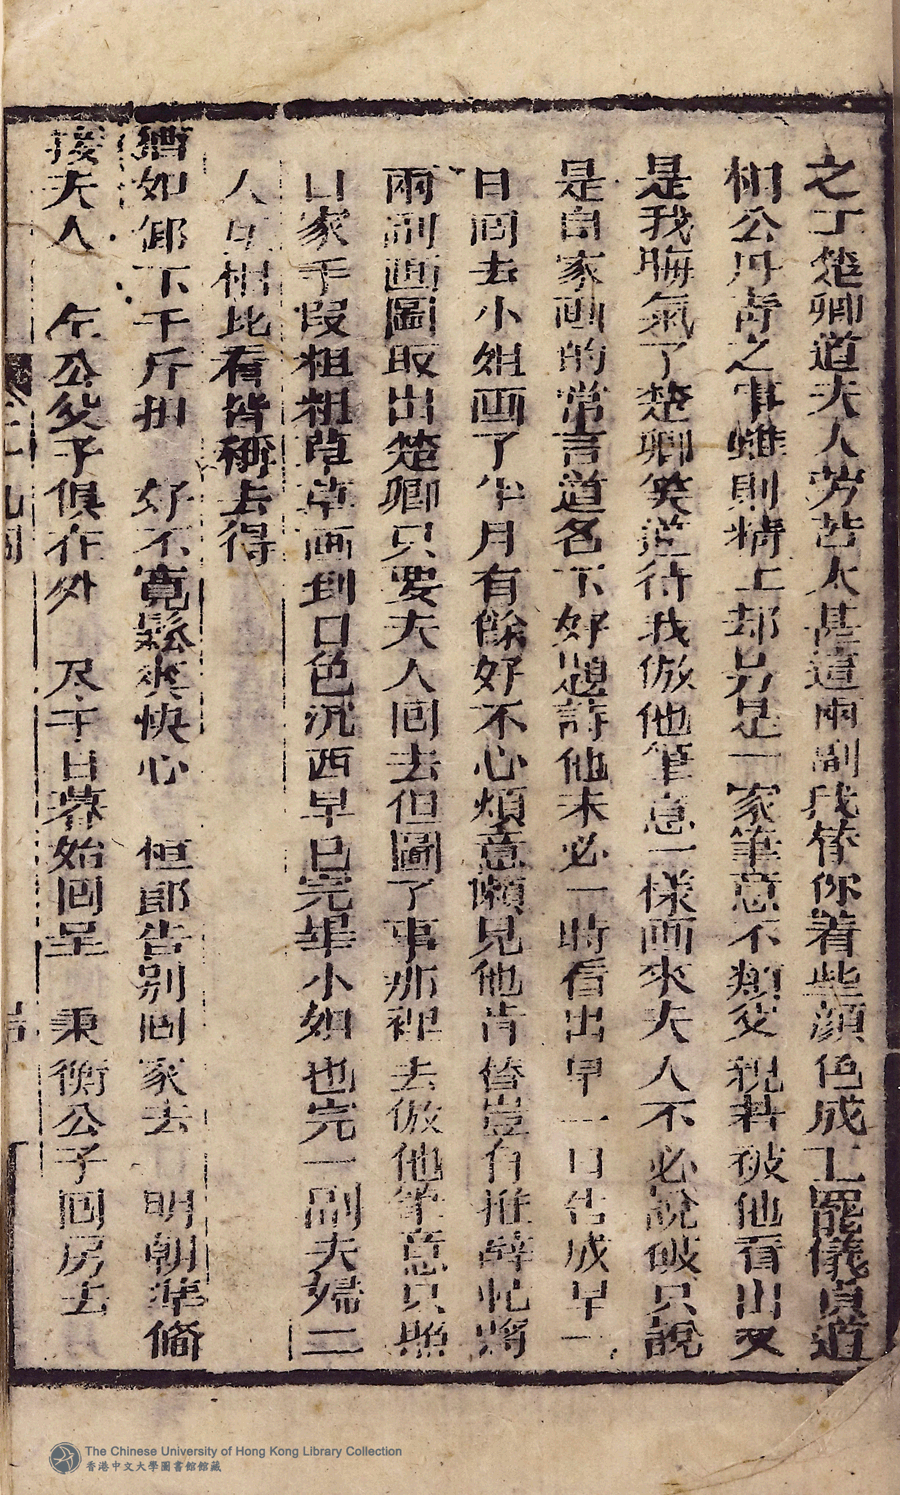 之丁楚卿道夫人劳苦太甚這兩副我替你着些顏色成工罷儀貞道
相公丹青之事雖則精工却另是一家筆意不類父親若被他看出又
是我晦氣了楚卿笑道待我倣他筆意一樣画來夫人不必說破只說
是自家画的常言道名下好題詩他未必一時看出早一日告成早一
日囘去小姐画了半月有餘好不心煩意懶見他肯替豈有推辭忙將
兩副画圖取出楚卿只要夫人囘去但圖了事那裡去倣他筆意只照
自家手段粗粗草草画到日色沉西早已完畢小如也完一副夫婦二
人互相比看皆稱去得
猶如卸下千斤担 好不寬鬆爽快心 恒郎告別囘家去 明朝準俻
接夫人 左公父子俱在外 及于日暮始囘呈 秉衡公子囘房去
The Chinese University of Hong Kong Library Collection
香港中文大學圖書館館藏